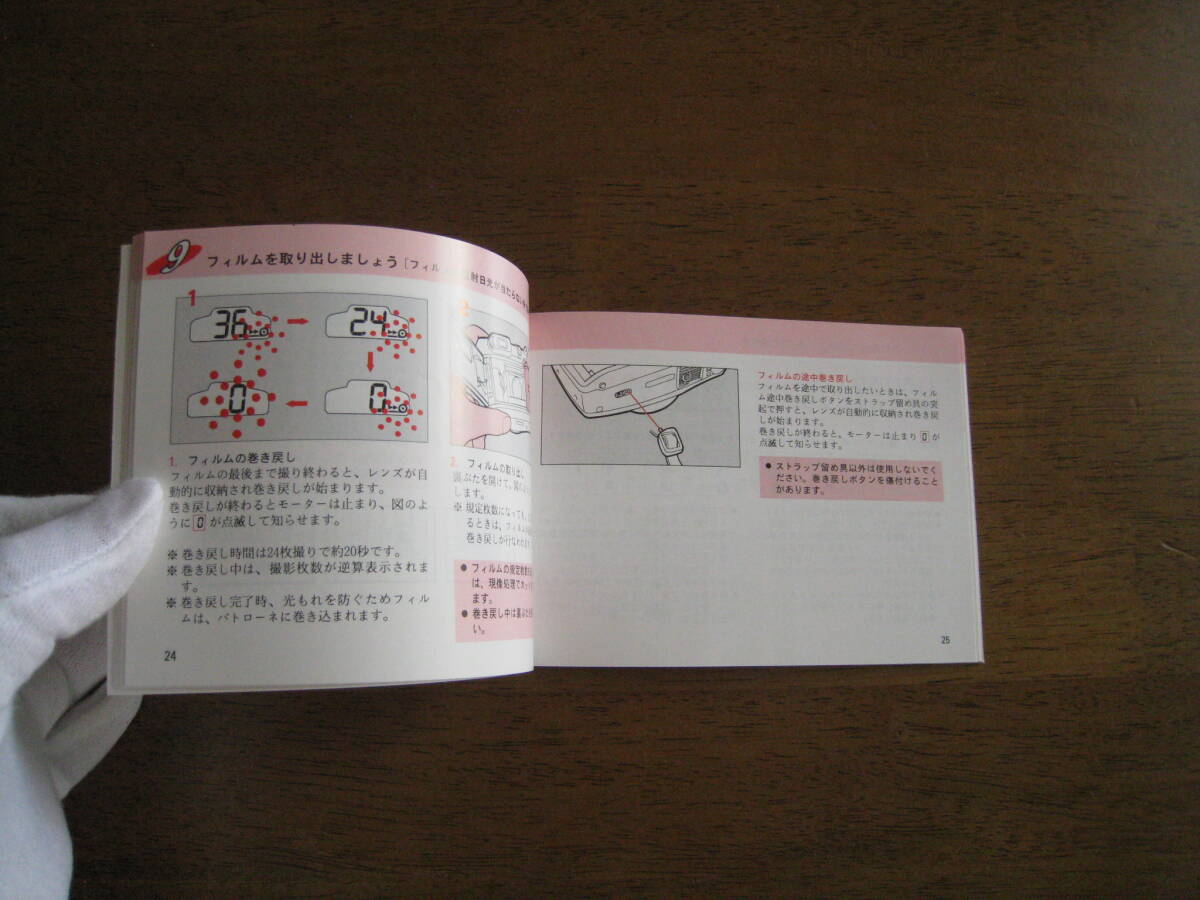 9 フィルムを取り出しましょう［フィル
射日光が当たらない
1
36
24
0
0
1. フィルムの巻き戻し
フィルムの最後まで撮り終わると、レンズが自
動的に収納され巻き戻しが始まります。
巻き戻しが終わるとモーターは止まり、図のよ
うに 0 が点滅して知らせます。
※ 巻き戻し時間は24枚撮りで約20秒です。
※ 巻き戻し中は、撮影枚数が逆算表示されま
す。
※ 巻き戻し完了時、光もれを防ぐためフィル
ムは、パトローネに巻き込まれます。
24
2
2. フィルムの取り出し
裏ぶたを開けて、図の
します。
※ 規定枚数になっても、
るときは、フィルムの
巻き戻しが行なわれ
● フィルムの規定枚数を
は、現像処理でカット
ます。
● 巻き戻し中は裏ぶたを
い。
フィルムの途中巻き戻し
フィルムを途中で取り出したいときは、フィル
ム途中巻き戻しボタンをストラップ留め具の突
起で押すと、レンズが自動的に収納され巻き戻
しが始まります。
巻き戻しが終わると、モーターは止まり 0 が
点滅して知らせます。
● ストラップ留め具以外は使用しないでく
ださい。巻き戻しボタンを傷付けること
があります。
25